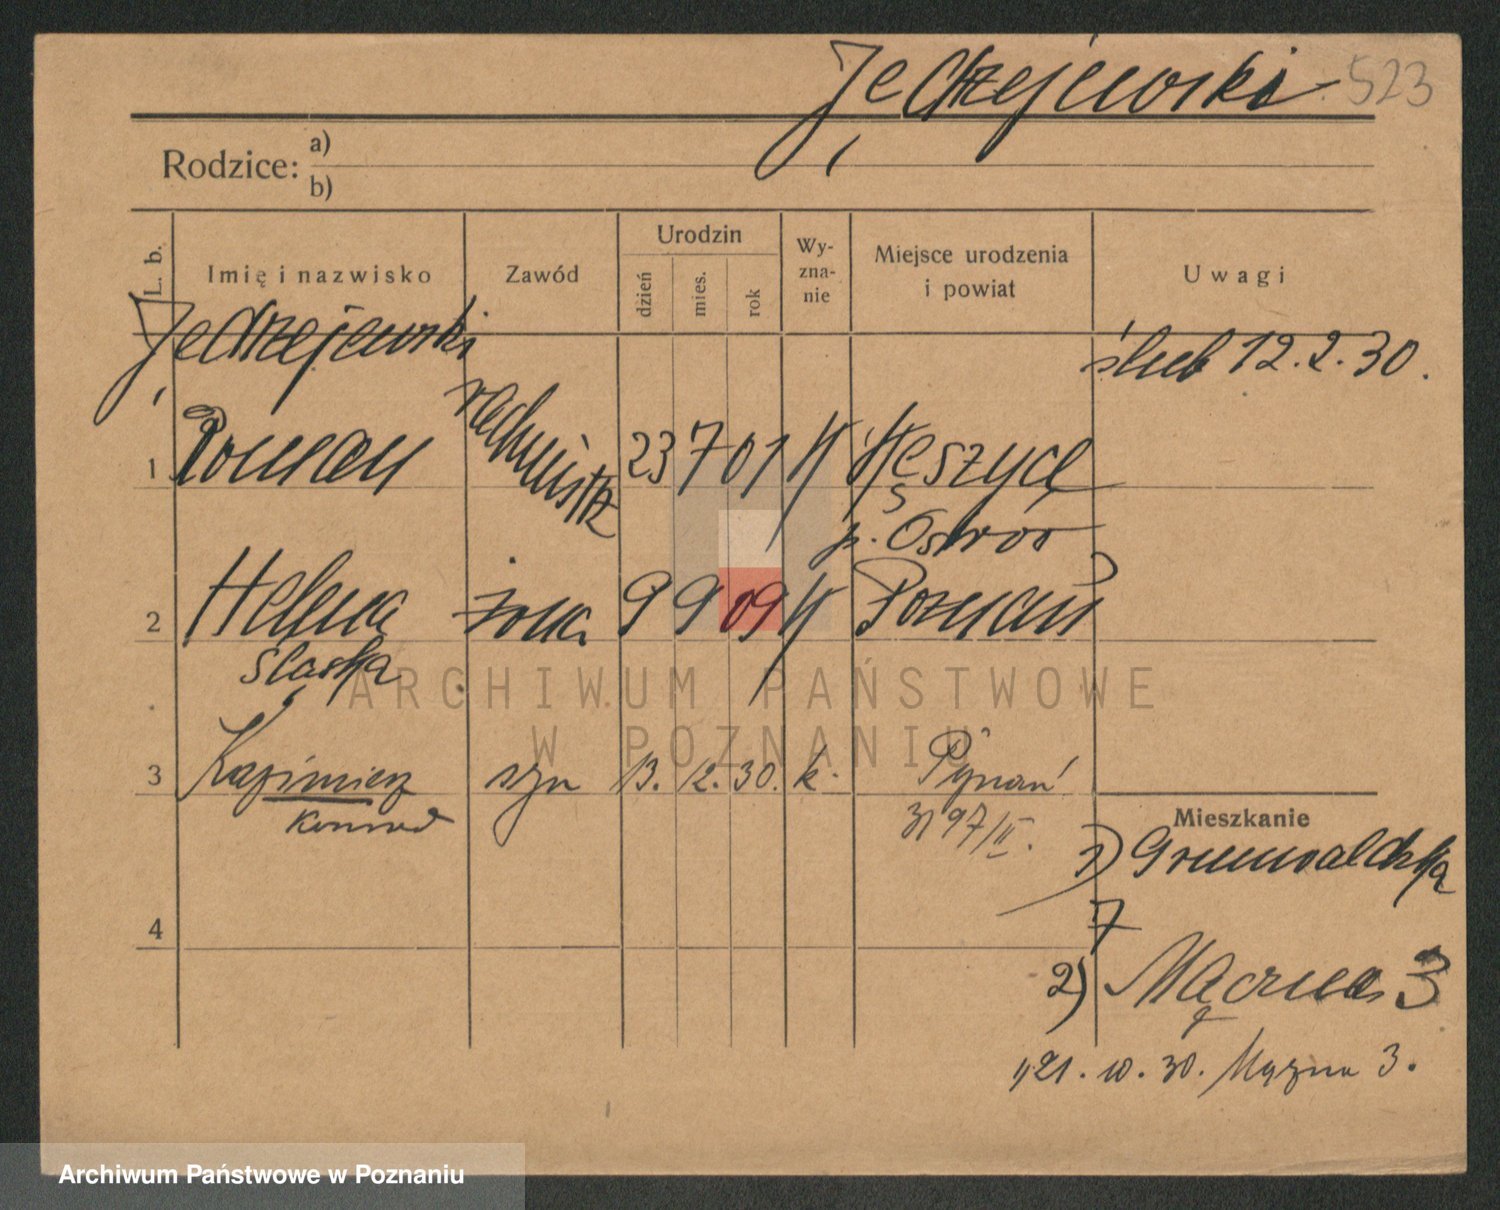 Jędrzejewski 523
Rodzice: a)
b)
L. b. Imię i nazwisko Zawód Urodzin dzień mies. rok Wy-zna-nie Miejsce urodzenia i powiat Uwagi
Jędrzejewski ślub 12.2.30.
1 Roman 23 7 01 k
p. Ostrów
2 Helena żona 9 9 09 k Poznań
Śląska
3 Kazimierz syn 13. 12. 30. k. Poznań
Konrad 97/II.
Mieszkanie
1) Grunwaldzka
7
4
2) Mączna 3
21.10.30. Mączna 3.
ARCHIWUM PAŃSTWOWE
W POZNANIU
Archiwum Państwowe w Poznaniu